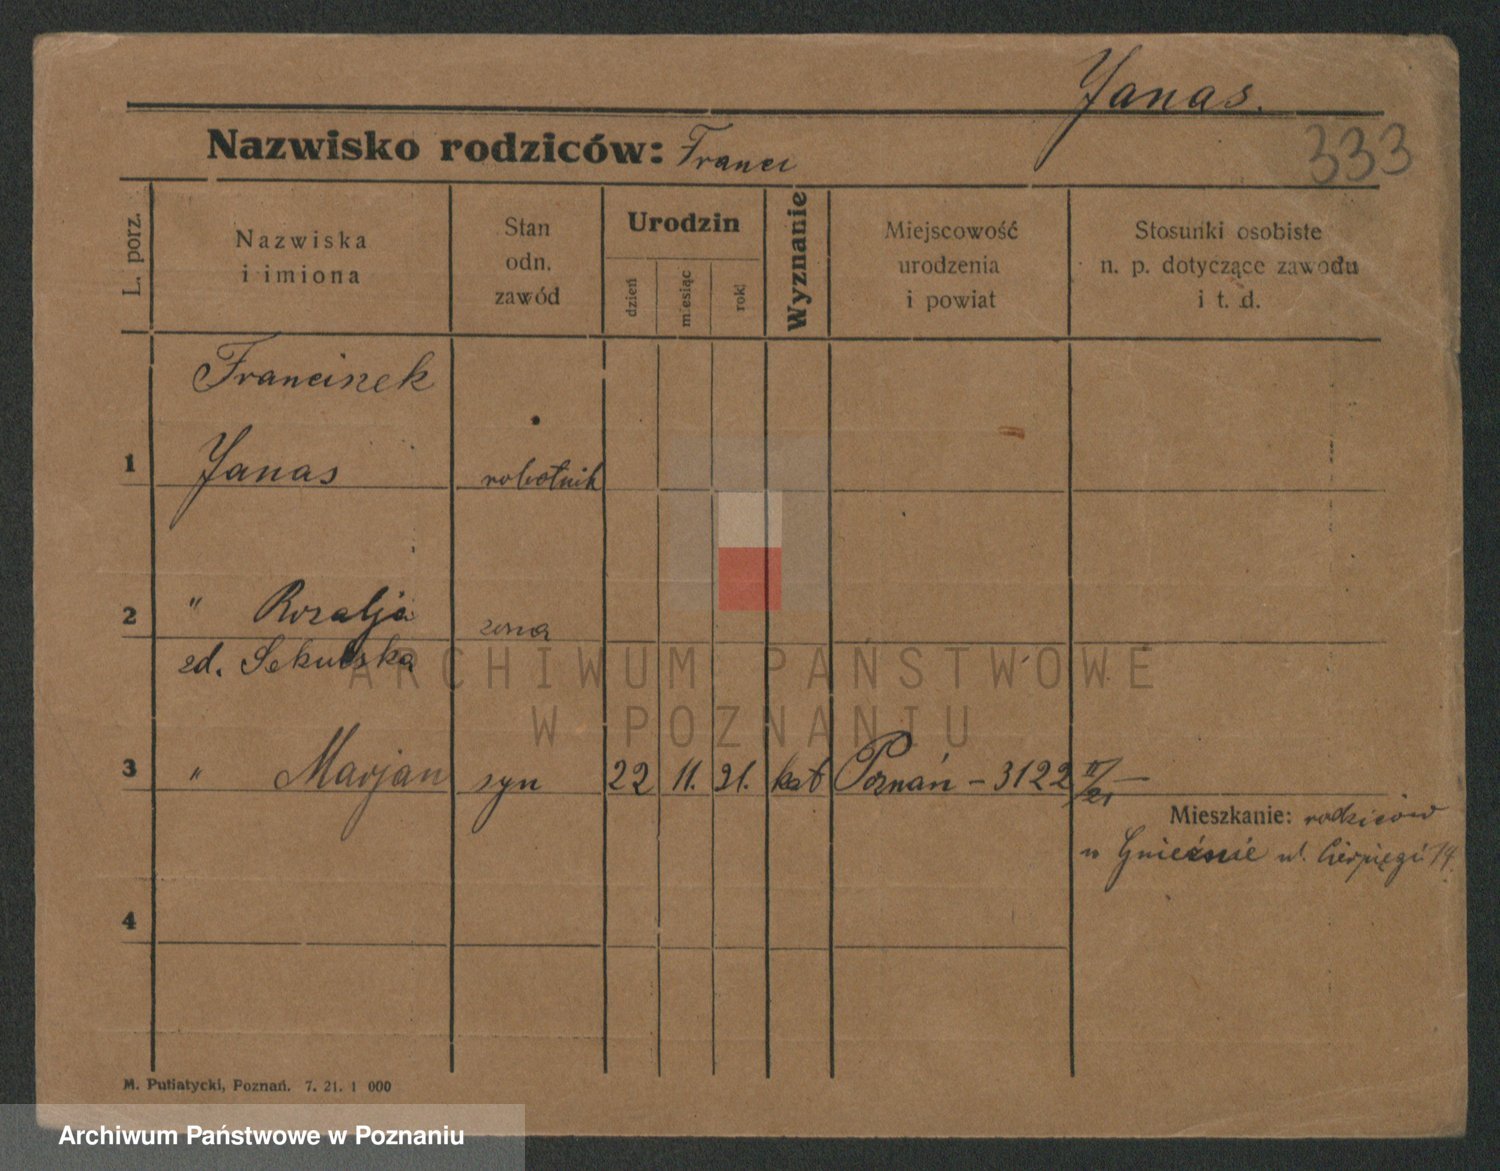 Janas.
Nazwisko rodziców: Franci
333
L. porz.
Nazwiska
i imiona
Stan
odn.
zawód
Urodzin
dzień
miesiąc
rok
Wyznanie
Miejscowość
urodzenia
i powiat
Stosunki osobiste
n. p. dotyczące zawodu
i t. d.
Franciszek
1 Janas robotnik
2 " Rozalja żona
zd. Sekulska
ARCHIWUM PAŃSTWOWE
W POZNANIU
3 " Marjan syn 22 11. 21. kat Poznań - 3122 II/21 —
Mieszkanie: rodziców
w Gnieźnie ul. Cierpięgi 14.
4
M. Putiatycki, Poznań. 7. 21. 1 000
Archiwum Państwowe w Poznaniu